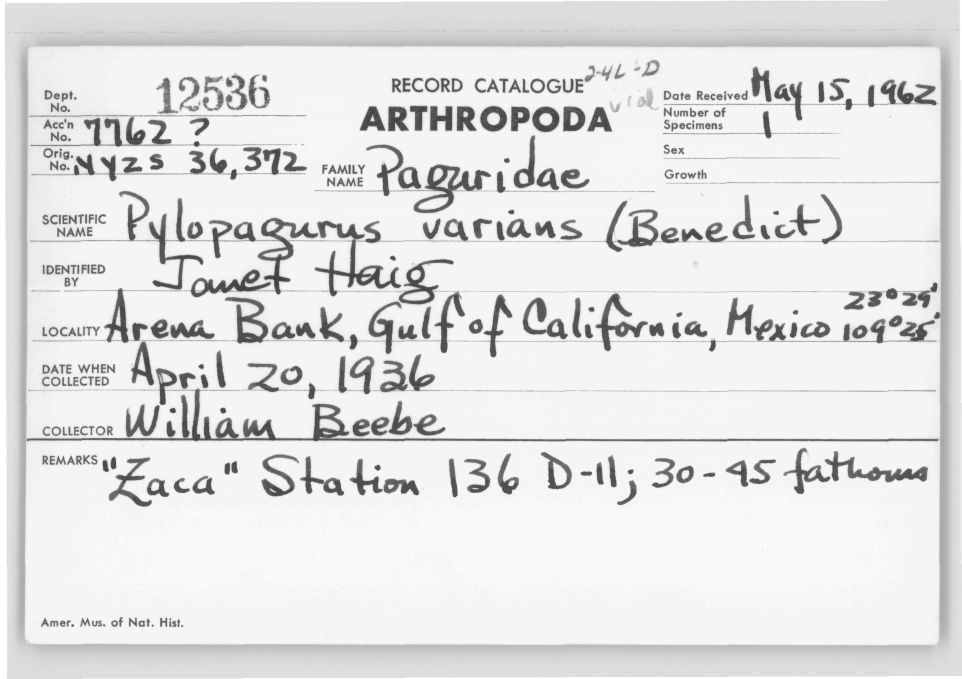 Dept. No. 12536
RECORD CATALOGUE 2-4L-D
vial
Date Received May 15, 1962
Acc'n No. 7762 ?
ARTHROPODA
Number of Specimens 1
Orig. No. NYZS 36,372
FAMILY NAME Paguridae
Sex
Growth
SCIENTIFIC NAME Pylopagurus varians (Benedict)
IDENTIFIED BY Janet Haig
23°29'
LOCALITY Arena Bank, Gulf of California, Mexico 109°25'
DATE WHEN COLLECTED April 20, 1936
COLLECTOR William Beebe
REMARKS "Zaca" Station 136 D-11; 30-45 fathoms
Amer. Mus. of Nat. Hist.